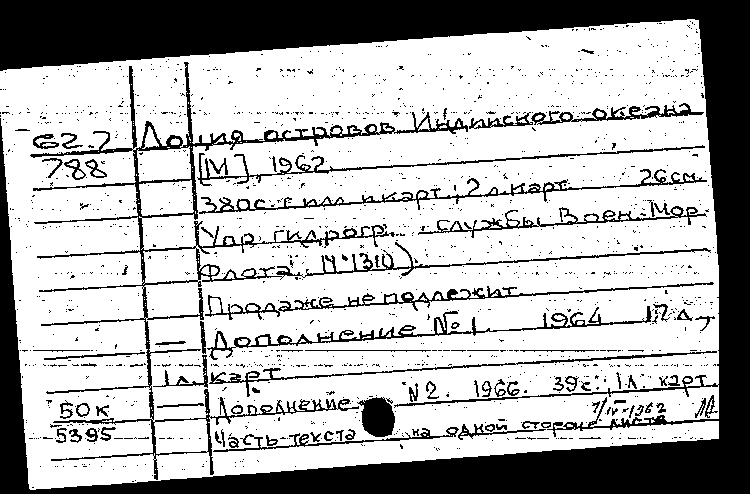 62.7 Лоция островов Индийского океана
788 [М], 1962.
380с. с илл. и карт.; 2 л. карт. 26 см.
(Упр. гидрогр. службы Воен.-Мор.
Флота. № 1310).
Продаже не подлежит
— Дополнение № 1 1964 17 л.,
1 л. карт
— Дополнение N 2. 1966. 39 с., 1 л. карт.
50 к
5395 Часть текста на одной стороне листа